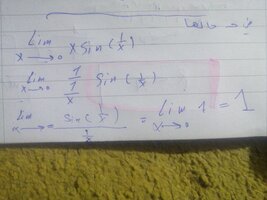 Lim x→0 x Sin(1/x)
Lim x→0 1/(1/x) Sin(1/x)
lim x→0 = Sin(1/x)/(1/x) = lim x→0 1 = 1